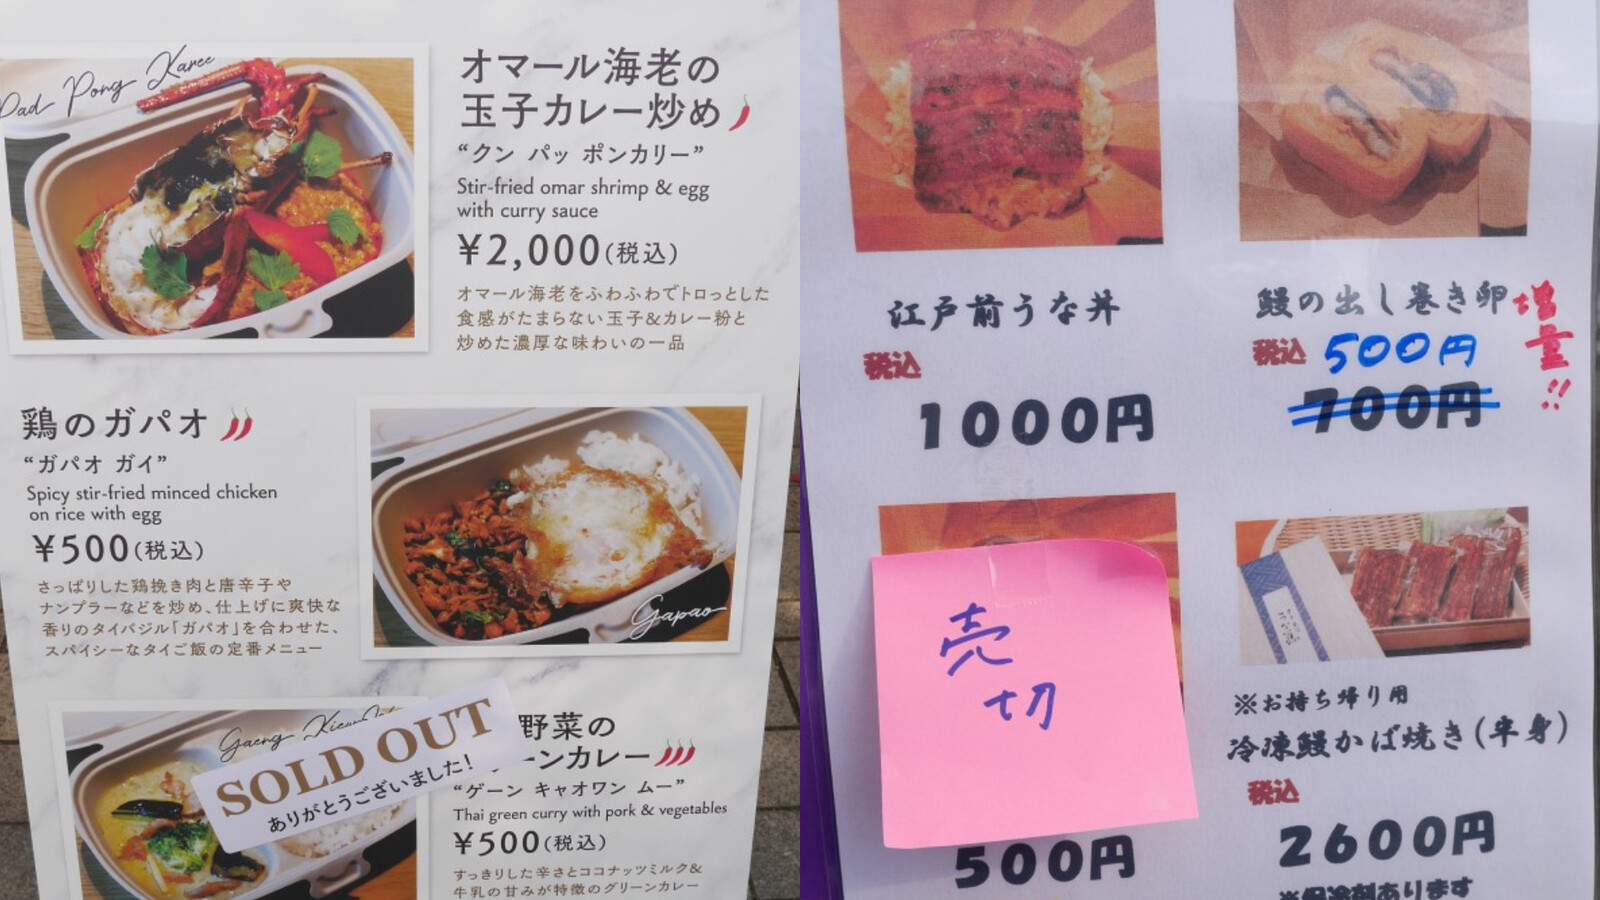 Pad Pong Karee
オマール海老の
玉子カレー炒め
“クン パッ ポンカリー”
Stir-fried omar shrimp & egg
with curry sauce
¥2,000(税込)
オマール海老をふわふわでトロっとした
食感がたまらない玉子&カレー粉と
炒めた濃厚な味わいの一品
鶏のガパオ
“ガパオ ガイ”
Spicy stir-fried minced chicken
on rice with egg
¥500(税込)
さっぱりした鶏挽き肉と唐辛子や
ナンプラーなどを炒め、仕上げに爽快な
香りのタイバジル「ガパオ」を合わせた、
スパイシーなタイご飯の定番メニュー
Gapao
Gaeng
SOLD OUT
ありがとうございました!
野菜の
ーンカレー
“ゲーン キャオワン ムー”
Thai green curry with pork & vegetables
¥500(税込)
すっきりした辛さとココナッツミルク&
牛乳の甘みが特徴のグリーンカレー
江戸前うな丼
税込
1000円
鰻の出し巻き卵
増量!!
税込 500円
700円
売切
500円
※お持ち帰り用
冷凍鰻かば焼き(半身)
税込
2600円
※保冷剤あります